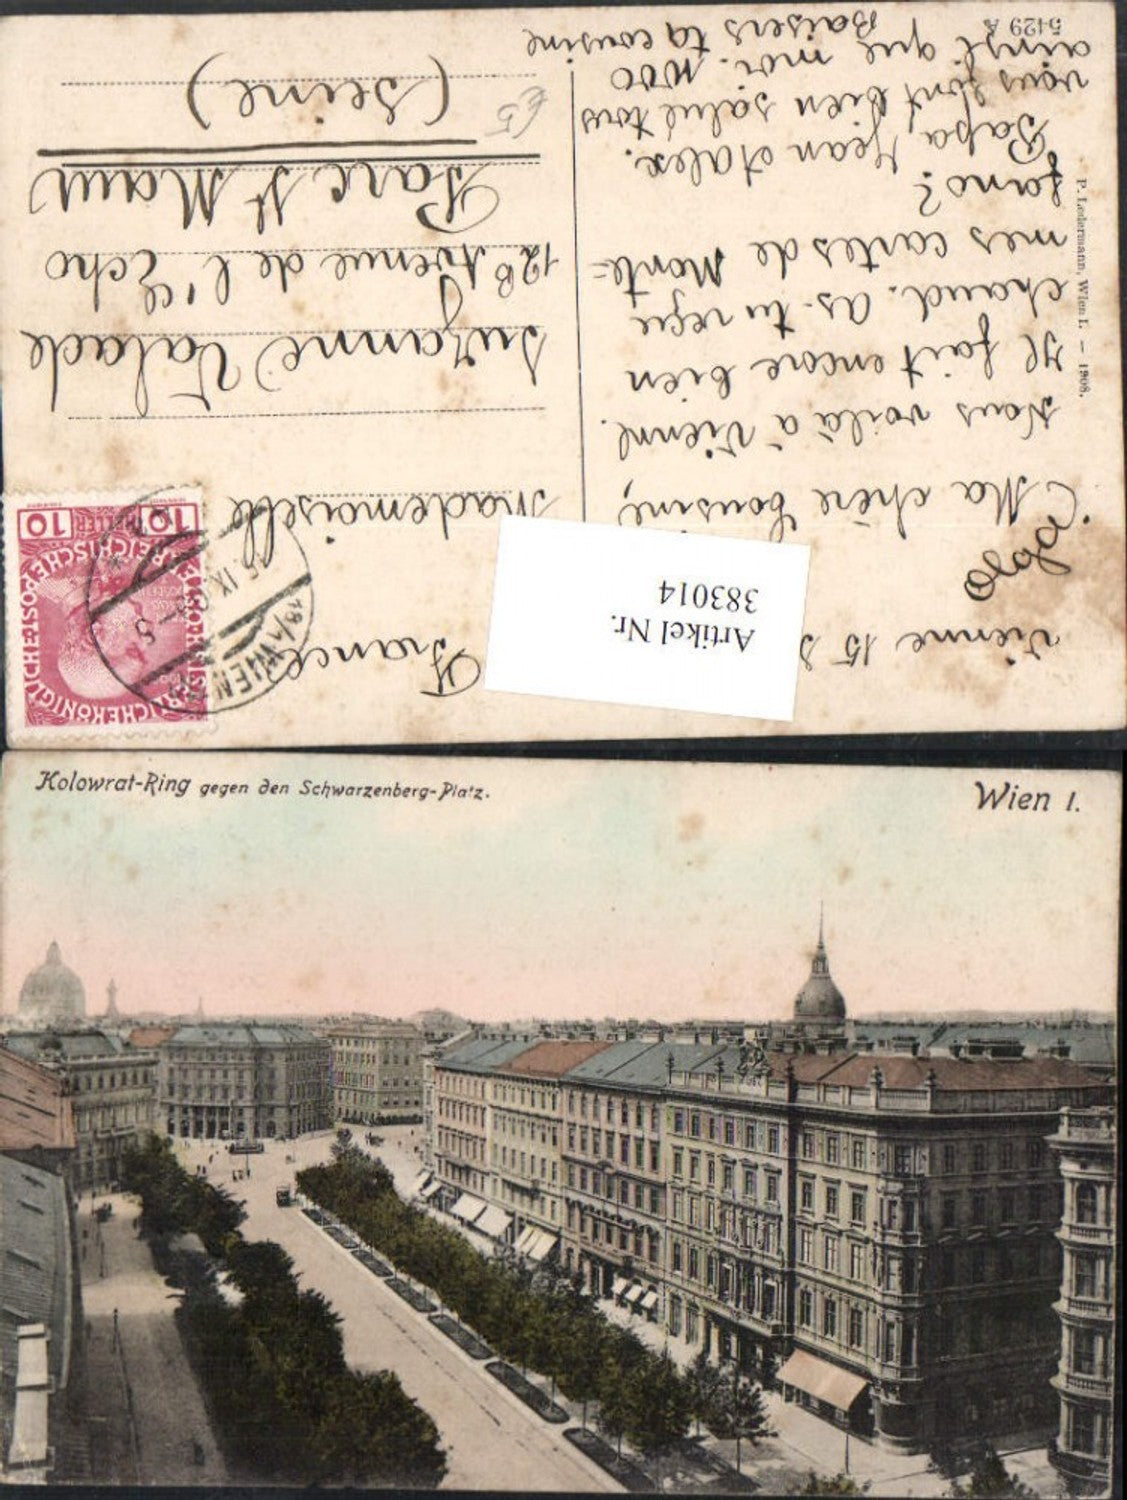 Vienne 15
Ma chère Cousine,
Nous voilà à Vienne.
Il fait encore bien
chaud. As-tu reçu
mes cartes de Monte-
Carlo?
Papa, Jean et Alex.
vous font bien salut tous
ainsi que moi. 1000
Baisers ta cousine
France
Mademoiselle
Suzanne Valade
12B Avenue de l'Echo
Parc St Maur
(Seine)
£5
5429 A
P. Ledermann, Wien I. — 1908.
Artikel Nr.
383014
10 HELLER 10
KAISERLICHE KÖNIGLICHE ÖSTERREICHISCHE POST
WIEN
15.IX
Kolowrat-Ring gegen den Schwarzenberg-Platz.
Wien I.